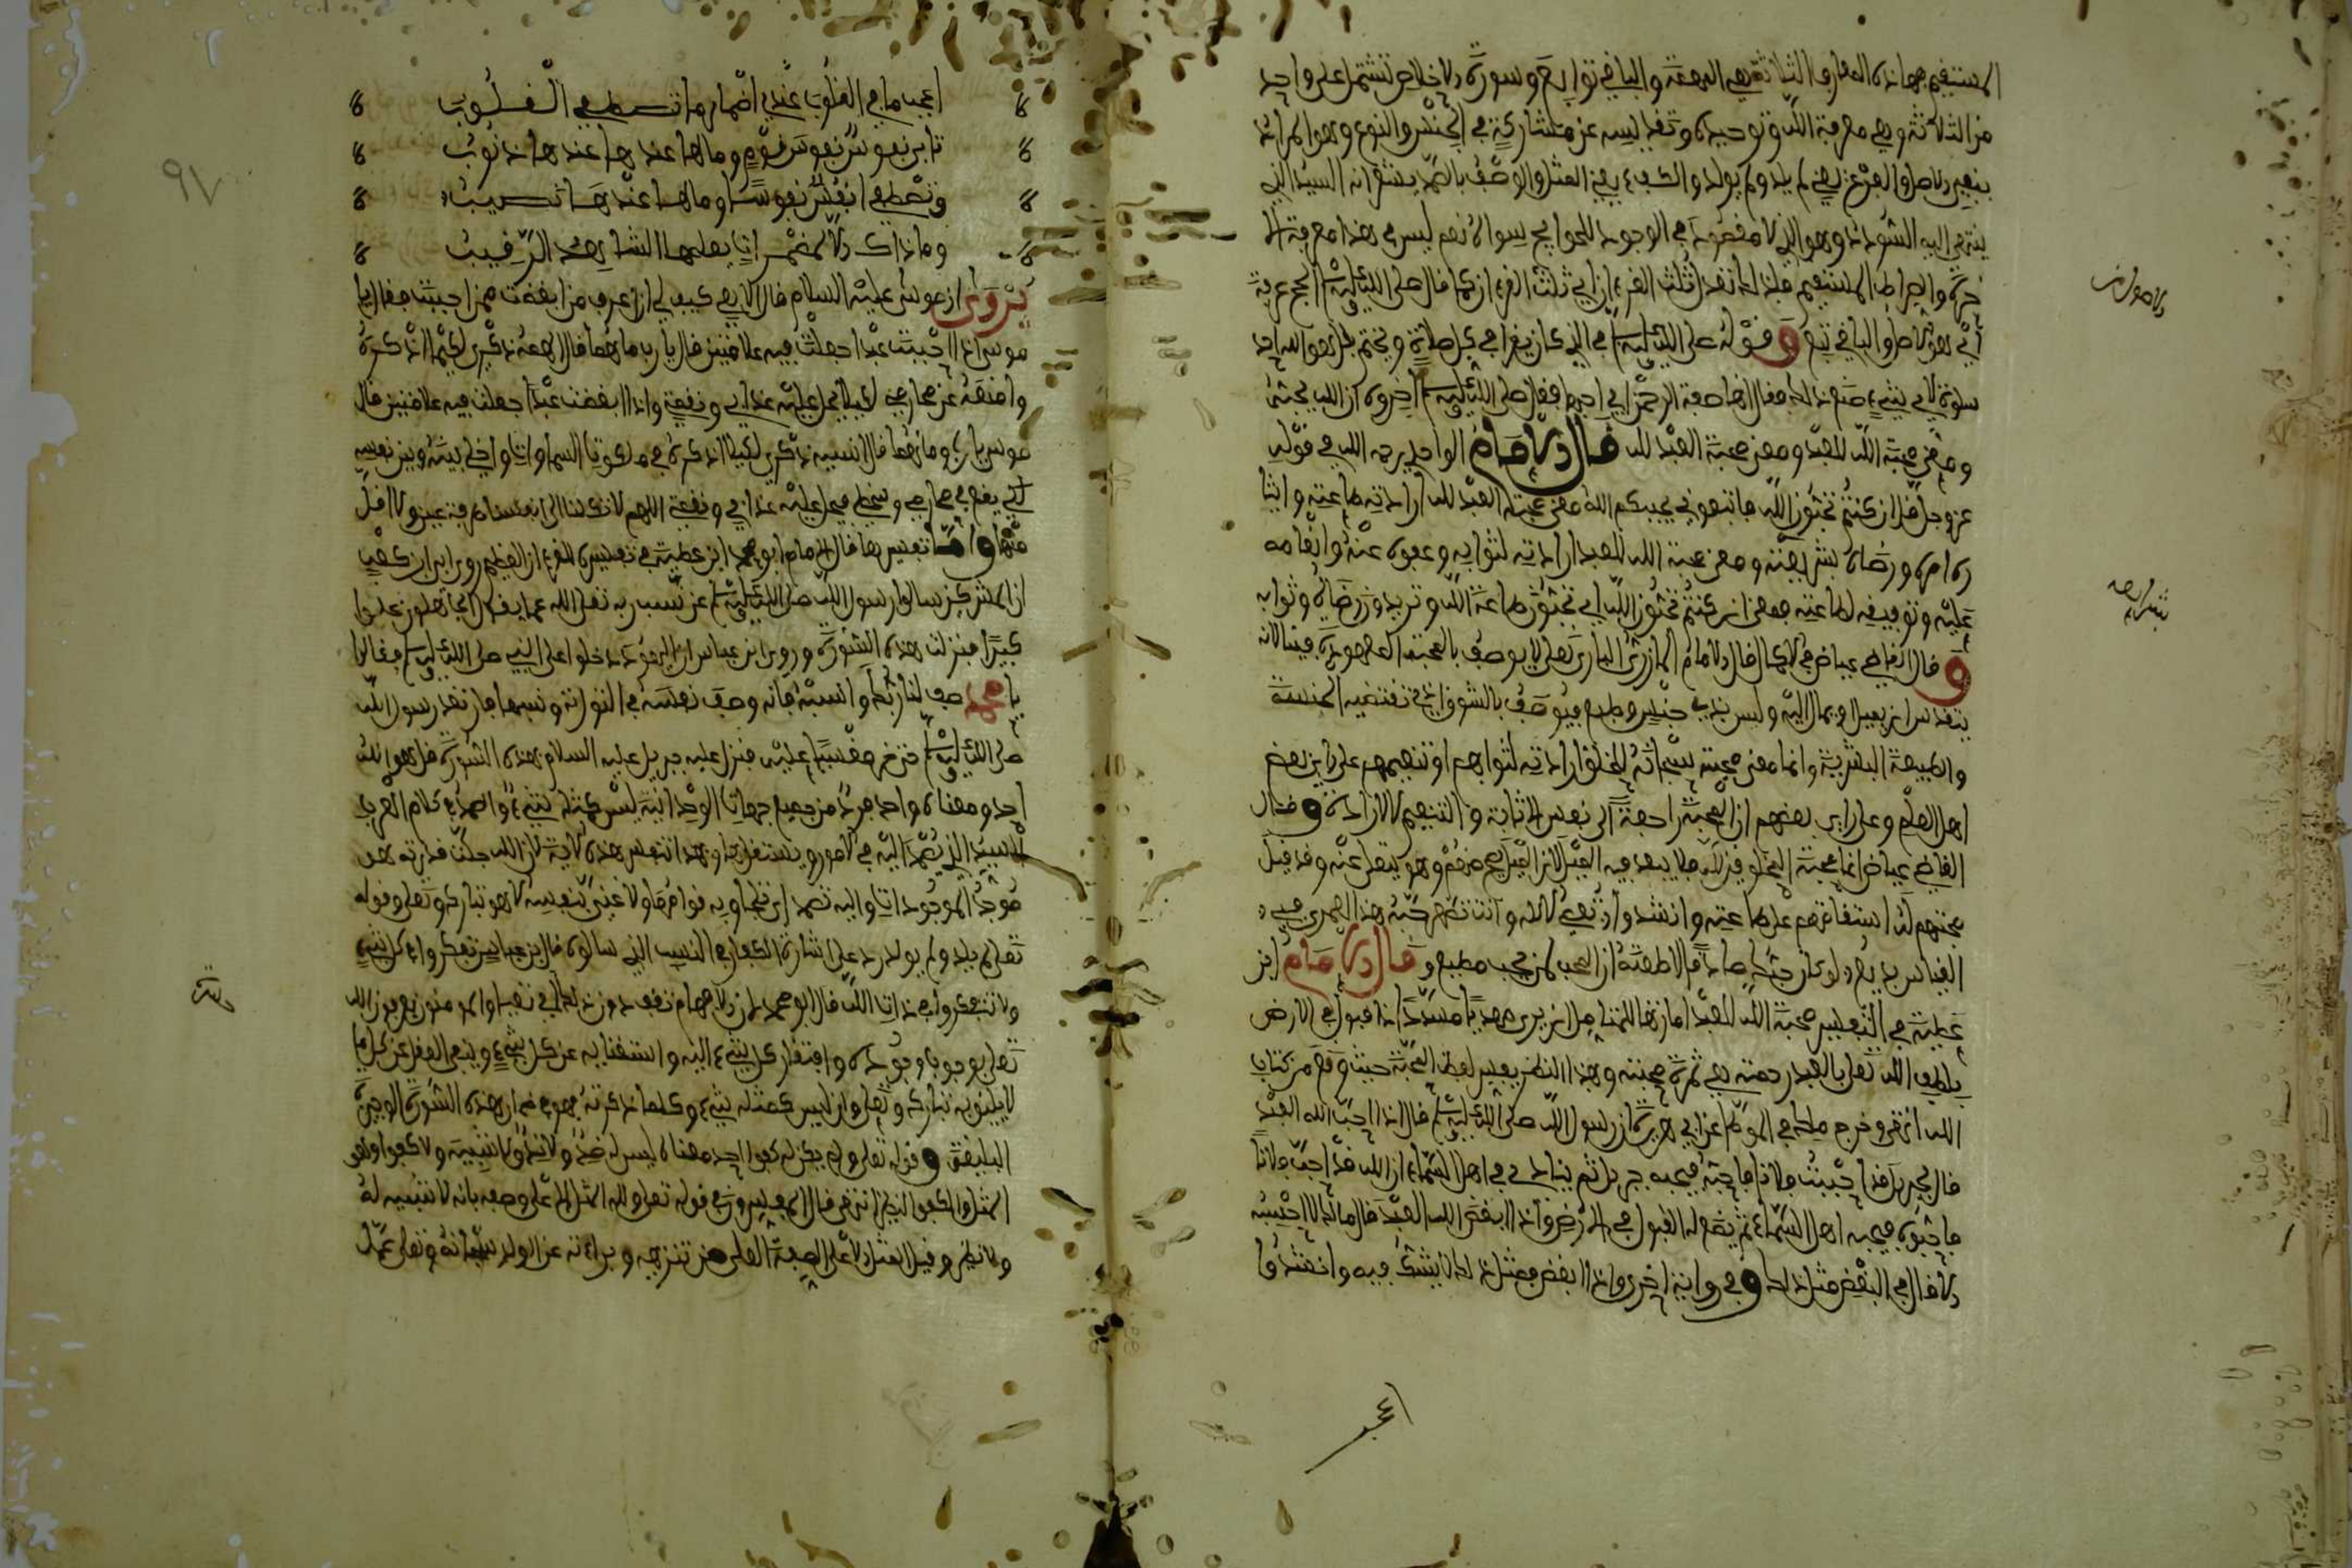 المستقيم فهاذه المعارف الثلاثة هي المهمة والباقي توابع وسورة الاخلاص تشتمل على واحد
من الثلاثة وهي معرفة الله وتوحيده وتقديسه عن مشارك في الجنس والنوع وهو المراد
بنفي الاصل والفرع يعني لم يلد ولم يولد والكفء يعني المثل والوصف بالصمد يشعر انه السيد الذي
ينتهي اليه السؤدد وهو الذي لا مقصود في الوجود للحوائج سواه نعم ليس في هذا معرفة الا
خرة والصراط المستقيم فلذلك تعدل ثلث القرءان اي ثلث القرءان كما قال صلى الله عليه وسلم الحج عرفة
اي هو الاصل والباقي تبع وقوله صلى الله عليه وسلم في الذي كان يقرا في كل صلاة ويختم بقل هو الله احد
سلوه لاي شيء صنع ذلك فقال انها صفة الرحمن اني احبها فقال صلى الله عليه وسلم اخبروه ان الله يحبه
ومعنى محبة الله للعبد ومعنى محبة العبد لله قال الامام الواحدي رحمه الله في قوله
عز وجل قل ان كنتم تحبون الله فاتبعوني يحببكم الله معنى محبة العبد لله ارادته طاعته وايثا
ره امره ورضاه بشرايعه ومعنى محبة الله للعبد ارادته لثوابه وعفوه عنه وانعامه
عليه وتوفيقه لطاعته فمعنى ان كنتم تحبون الله اي تحبون طاعة الله وتريدون رضاه وثوابه
وقال القاضي عياض في الاكمال قال الامام المازري الباري تعلى لا يوصف بالمحبة المعهودة فينا لانه
يتقدس ان يميل او يمال اليه وليس بذي جنس وطبع فيوصف بالشوق الذي تقتضيه الجنسية
والطبيعة البشرية وانما معنى محبته سبحانه للخلق ارادته لثوابهم او تنعيمهم على راي بعض
اهل العلم وعلى راي بعضهم ان المحبة راجعة الى نفس الاثابة والتنعيم لا لارادة وقال
القاضي عياض اما محبة المخلوقين لله فلا يبعد فيه الميل لان الميل يصح منهم وهو يتعلى عنه وقد قيل
محبتهم لله استقامتهم على طاعته وانشدوا تعصي الاله وانت تظهر حبه هذا لعمري في
القياس بديع لو كان حبك صادقا لاطعته ان المحب لمن يحب مطيع وقال الامام ابن
عطية في التفسير محبة الله للعبد امارتها للمتامل ان يرى مهديا مسددا ذا قبول في الارض
فلطف الله تعلى بالعبد ورحمته هي ثمرة محبته وبهذا النظر يفسر لفظ المحبة حيث وقع من كتاب
الله انتهى وخرج ملك في الموطا عن ابي هريرة ان رسول الله صلى الله عليه وسلم قال اذا احب الله العبد
قال لجبريل قد احببت فلانا فاحبه فيحبه جبريل ثم ينادي في اهل السماء ان الله قد احب فلانا
فاحبوه فيحبه اهل السماء ثم يضع له القبول في الارض واذا ابغض الله العبد قال مالك لا احسبه
الا قال في البغض مثل ذلك وفي رواية اخرى واذا ابغض فمثل ذلك لا يشك فيه وانشدوا
اعجب
اعجب ما في القلوب عندي اضمار ما تسطع القلوب
تابى نفوس نفوس قوم وما لها عندها ذنوب
وتصطفي انفس نفوسا وما لها عندها نصيب
وما ذاك الا لمضمرات يعلمها الشاهد الرقيب
يروى ان موسى عليه السلام قال الاهي كيف لي ان اعرف من ابغضت ممن احببت فقال يا
موسى اذا احببت عبدا جعلت فيه علامتين قال يا رب ما هما قال الهمه ذكري لكيما اذكره
وامنعه عن محارمي لكيلا يحل عليه عذابي ونقمتي واذا ابغضت عبدا جعلت فيه علامتين قال
موسى يا رب وما هما قال انسيه ذكري لكيلا اذكره في ملكوت السماوات واخلي بينه وبين نفسه
لكي يقع في محارمي وسخطي فيحل عليه عذابي ونقمتي اللهم لا تكلنا الى انفسنا طرفة عين ولا اقل
منها واما تفسيرها قال الامام ابو محمد ابن عطية في تفسير القرءان العظيم روى ابي ابن كعب
ان المشركين سالوا رسول الله صلى الله عليه وسلم عن نسب ربه تعلى الله عما يقول الجاهلون علوا
كبيرا فنزلت هذه السورة وروى ابن عباس ان اليهود دخلوا على النبي صلى الله عليه وسلم فقالوا
يا محمد صف لنا ربك وانسبه فانه وصف نفسه في التوراة ونسبها فارتعد رسول الله
صلى الله عليه وسلم حتى خر مغشيا عليه فنزل عليه جبريل عليه السلام بهذه السورة قل هو الله
احد ومعناه واحد فرد من جميع جهات الوحدانية ليس كمثله شيء والصمد في كلام العرب
السيد الذي يصمد اليه في الامور ويستقل بها وبهذا تتفسر هذه الاية لان الله جلت قدرته هو
موجد الموجودات واليه تصمد اي تلجا وبه قوامها ولا غني بنفسه الا هو تبارك وتعلى وقوله
تعلى لم يلد ولم يولد رد على اشارة الكفار في النسب الذي سالوه قال بن عباس تفكروا في كل شيء
ولا تتفكروا في ذات الله قال ابو محمد لان الافهام تقف دون ذلك والمومنون يعرفون الله
تعلى بوجوب وجوده وافتقار كل شيء اليه واستغنايه عن كل شيء وينفي العقل عن كل ما
لا يليق به تبارك وتعلى وان ليس كمثله شيء وكلما ذكرته فهو في ضمن هذه السورة الوجيزة
البليغة وقوله تعلى ولم يكن له كفوا احد معناه ليس له ضد ولا ند ولا شبيه والكفوا والكفؤ
المثل والكفو النظير انتهى قال المفسرون في قوله تعلى ولله المثل الاعلى وصفه بانه لا شبيه له
ولا نظير وقيل المثل الاعلى الصفة العلى من تنزهه وبراءته عن الولد سبحانه وتعلى عما
الاصول
شرايعه
٩٧